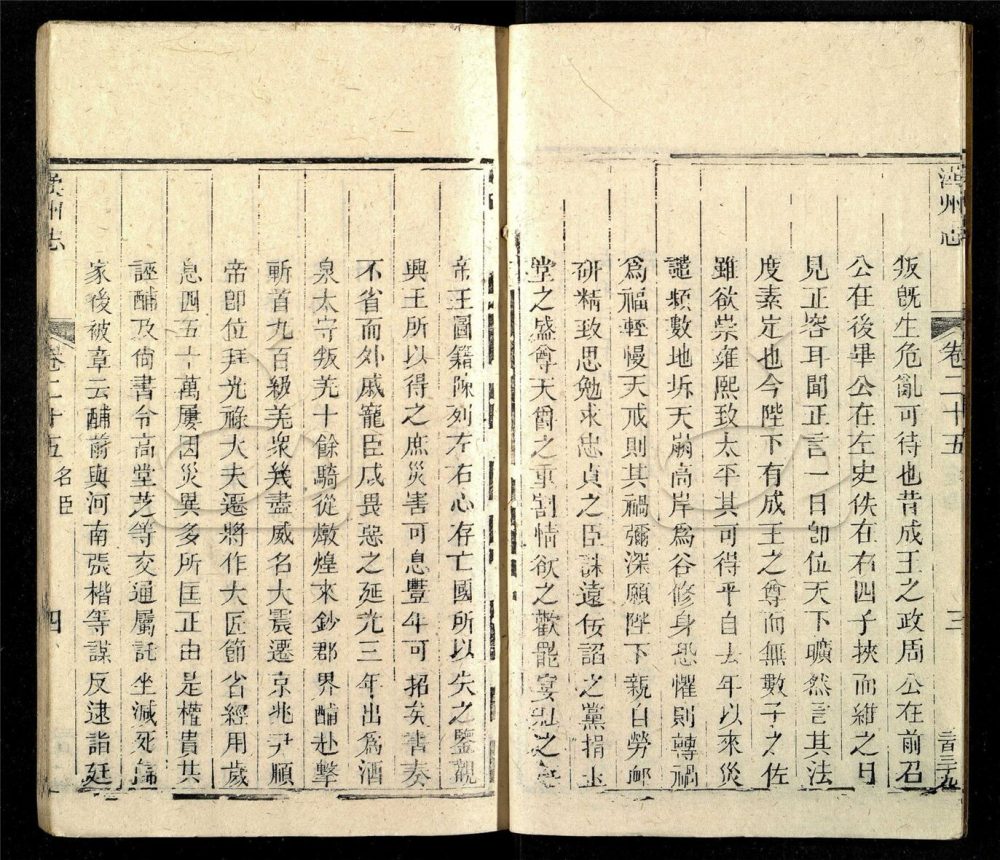 漢州志
卷二十五
三
叛旣生危亂可待也昔成王之政周公在前召
公在後畢公在左史佚在右四子挾而維之目
見正容耳聞正言一日卽位天下曠然言其法
度素定也今陛下有成王之尊而無數子之佐
雖欲崇雍熙致太平其可得乎自去年以來災
譴頻數地坼天崩高岸爲谷修身恐懼則轉禍
爲福輕慢天戒則其禍彌深願陛下親自勞卹
研精致思勉求忠貞之臣誅遠佞諂之黨捐玉
堂之盛尊天爵之重割情欲之歡罷宴私之
帝王圖籍陳列左右心存亡國所以失之鑒觀
興王所以得之庶災害可息豐年可招矣書奏
不省而外戚寵臣咸畏惡之延光三年出爲酒
泉太守叛羌十餘騎從燉煌來鈔郡界酺赴擊
斬首九百級羌衆幾盡威名大震遷京兆尹順
帝卽位拜光祿大夫遷將作大匠節省經用歲
息四五十萬屢因災異多所匡正由是權貴共
誣酺及尙書令高堂芝等交通屬託坐減死歸
家後被章云酺前與河南張楷等謀反逮詣廷
漢州志
卷二十五
名臣
四